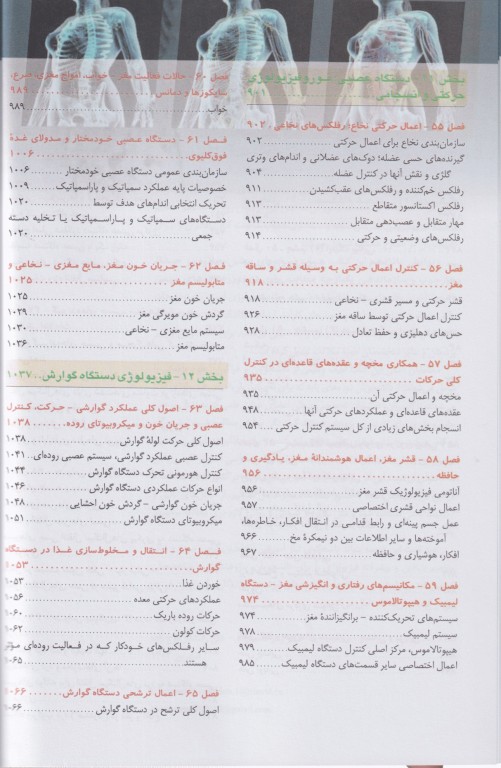 بخش ۱۱- دستگاه عصبی: نوروفیزیولوژی
حرکتی و انسجامی ۹۰۱
فصل ۵۵ - اعمال حرکتی نخاع؛ رفلکس‌های نخاعی . ۹۰۲
سازمان‌بندی نخاع برای اعمال حرکتی ۹۰۲
گیرنده‌های حسی عضله: دوک‌های عضلانی و اندام‌های وتری
گلژی و نقش آنها در کنترل عضله ۹۰۴
رفلکس خم‌کننده و رفلکس‌های عقب‌کشیدن ۹۱۱
رفلکس اکستانسور متقاطع ۹۱۳
مهار متقابل و عصب‌دهی متقابل ۹۱۳
رفلکس‌های وضعیتی و حرکتی ۹۱۴
فصل ۵۶ - کنترل اعمال حرکتی به وسیله قشر و ساقه
مغز ۹۱۸
قشر حرکتی و مسیر قشری - نخاعی ۹۱۸
کنترل اعمال حرکتی توسط ساقه مغز ۹۲۶
حس‌های دهلیزی و حفظ تعادل ۹۲۸
فصل ۵۷ - همکاری مخچه و عقده‌های قاعده‌ای در کنترل
کلی حرکات ۹۳۵
مخچه و اعمال حرکتی آن ۹۳۵
عقده‌های قاعده‌ای و عملکردهای حرکتی آنها ۹۴۸
انسجام بخش‌های زیادی از کل سیستم کنترل حرکتی ۹۵۴
فصل ۵۸ - قشر مغز، اعمال هوشمندانهٔ مغز، یادگیری و
حافظه ۹۵۶
آناتومی فیزیولوژیک قشر مغز ۹۵۶
اعمال نواحی قشری اختصاصی ۹۵۷
عمل جسم پینه‌ای و رابط قدامی در انتقال افکار، خاطره‌ها،
آموخته‌ها و سایر اطلاعات بین دو نیمکرهٔ مخ ۹۶۶
افکار، هوشیاری و حافظه ۹۶۷
فصل ۵۹ - مکانیسم‌های رفتاری و انگیزشی مغز - دستگاه
لیمبیک و هیپوتالاموس ۹۷۴
سیستم‌های تحریک‌کننده - برانگیزانندهٔ مغز ۹۷۴
سیستم لیمبیک ۹۷۸
هیپوتالاموس، مرکز اصلی کنترل دستگاه لیمبیک ۹۷۹
اعمال اختصاصی سایر قسمت‌های دستگاه لیمبیک ۹۸۵
فصل ۶۰ - حالات فعالیت مغز - خواب، امواج مغزی، صرع،
سایکوزها و دمانس ۹۸۹
خواب ۹۸۹
فصل ۶۱ - دستگاه عصبی خودمختار و مدولای غدهٔ
فوق‌کلیوی ۱۰۰۶
سازمان‌بندی عمومی دستگاه عصبی خودمختار ۱۰۰۶
خصوصیات پایه عملکرد سمپاتیک و پاراسمپاتیک ۱۰۰۹
تحریک انتخابی اندام‌های هدف توسط ۱۰۲۰
دستگاه‌های سمپاتیک و پاراسمپاتیک یا تخلیه دسته
جمعی ۱۰۲۰
فصل ۶۲ - جریان خون مغز، مایع مغزی - نخاعی و
متابولیسم مغز ۱۰۲۵
جریان خون مغز ۱۰۲۵
گردش خون مویرگی مغز ۱۰۲۹
سیستم مایع مغزی - نخاعی ۱۰۳۰
متابولیسم مغز ۱۰۳۶
بخش ۱۲- فیزیولوژی دستگاه گوارش ۱۰۳۷
فصل ۶۳ - اصول کلی عملکرد گوارشی - حرکت، کنترل
عصبی و جریان خون و میکروبیوتای روده ۱۰۳۸
اصول کلی حرکت لولهٔ گوارش ۱۰۳۸
کنترل عصبی عملکرد گوارشی، سیستم عصبی روده‌ای ۱۰۴۱
کنترل هورمونی تحرک دستگاه گوارش ۱۰۴۴
انواع حرکات عملکردی دستگاه گوارش ۱۰۴۶
جریان خون گوارشی - گردش خون احشایی ۱۰۴۸
میکروبیوتای دستگاه گوارش ۱۰۵۱
فصل ۶۴ - انتقال و مخلوط‌سازی غذا در دستگاه
گوارش ۱۰۵۳
خوردن غذا ۱۰۵۳
عملکردهای حرکتی معده ۱۰۵۶
حرکات روده باریک ۱۰۶۰
حرکات کولون ۱۰۶۲
سایر رفلکس‌های خودکار که در فعالیت روده‌ای مؤثر
هستند ۱۰۶۵
فصل ۶۵ - اعمال ترشحی دستگاه گوارش ۱۰۶۶
اصول کلی ترشح در دستگاه گوارش ۱۰۶۶